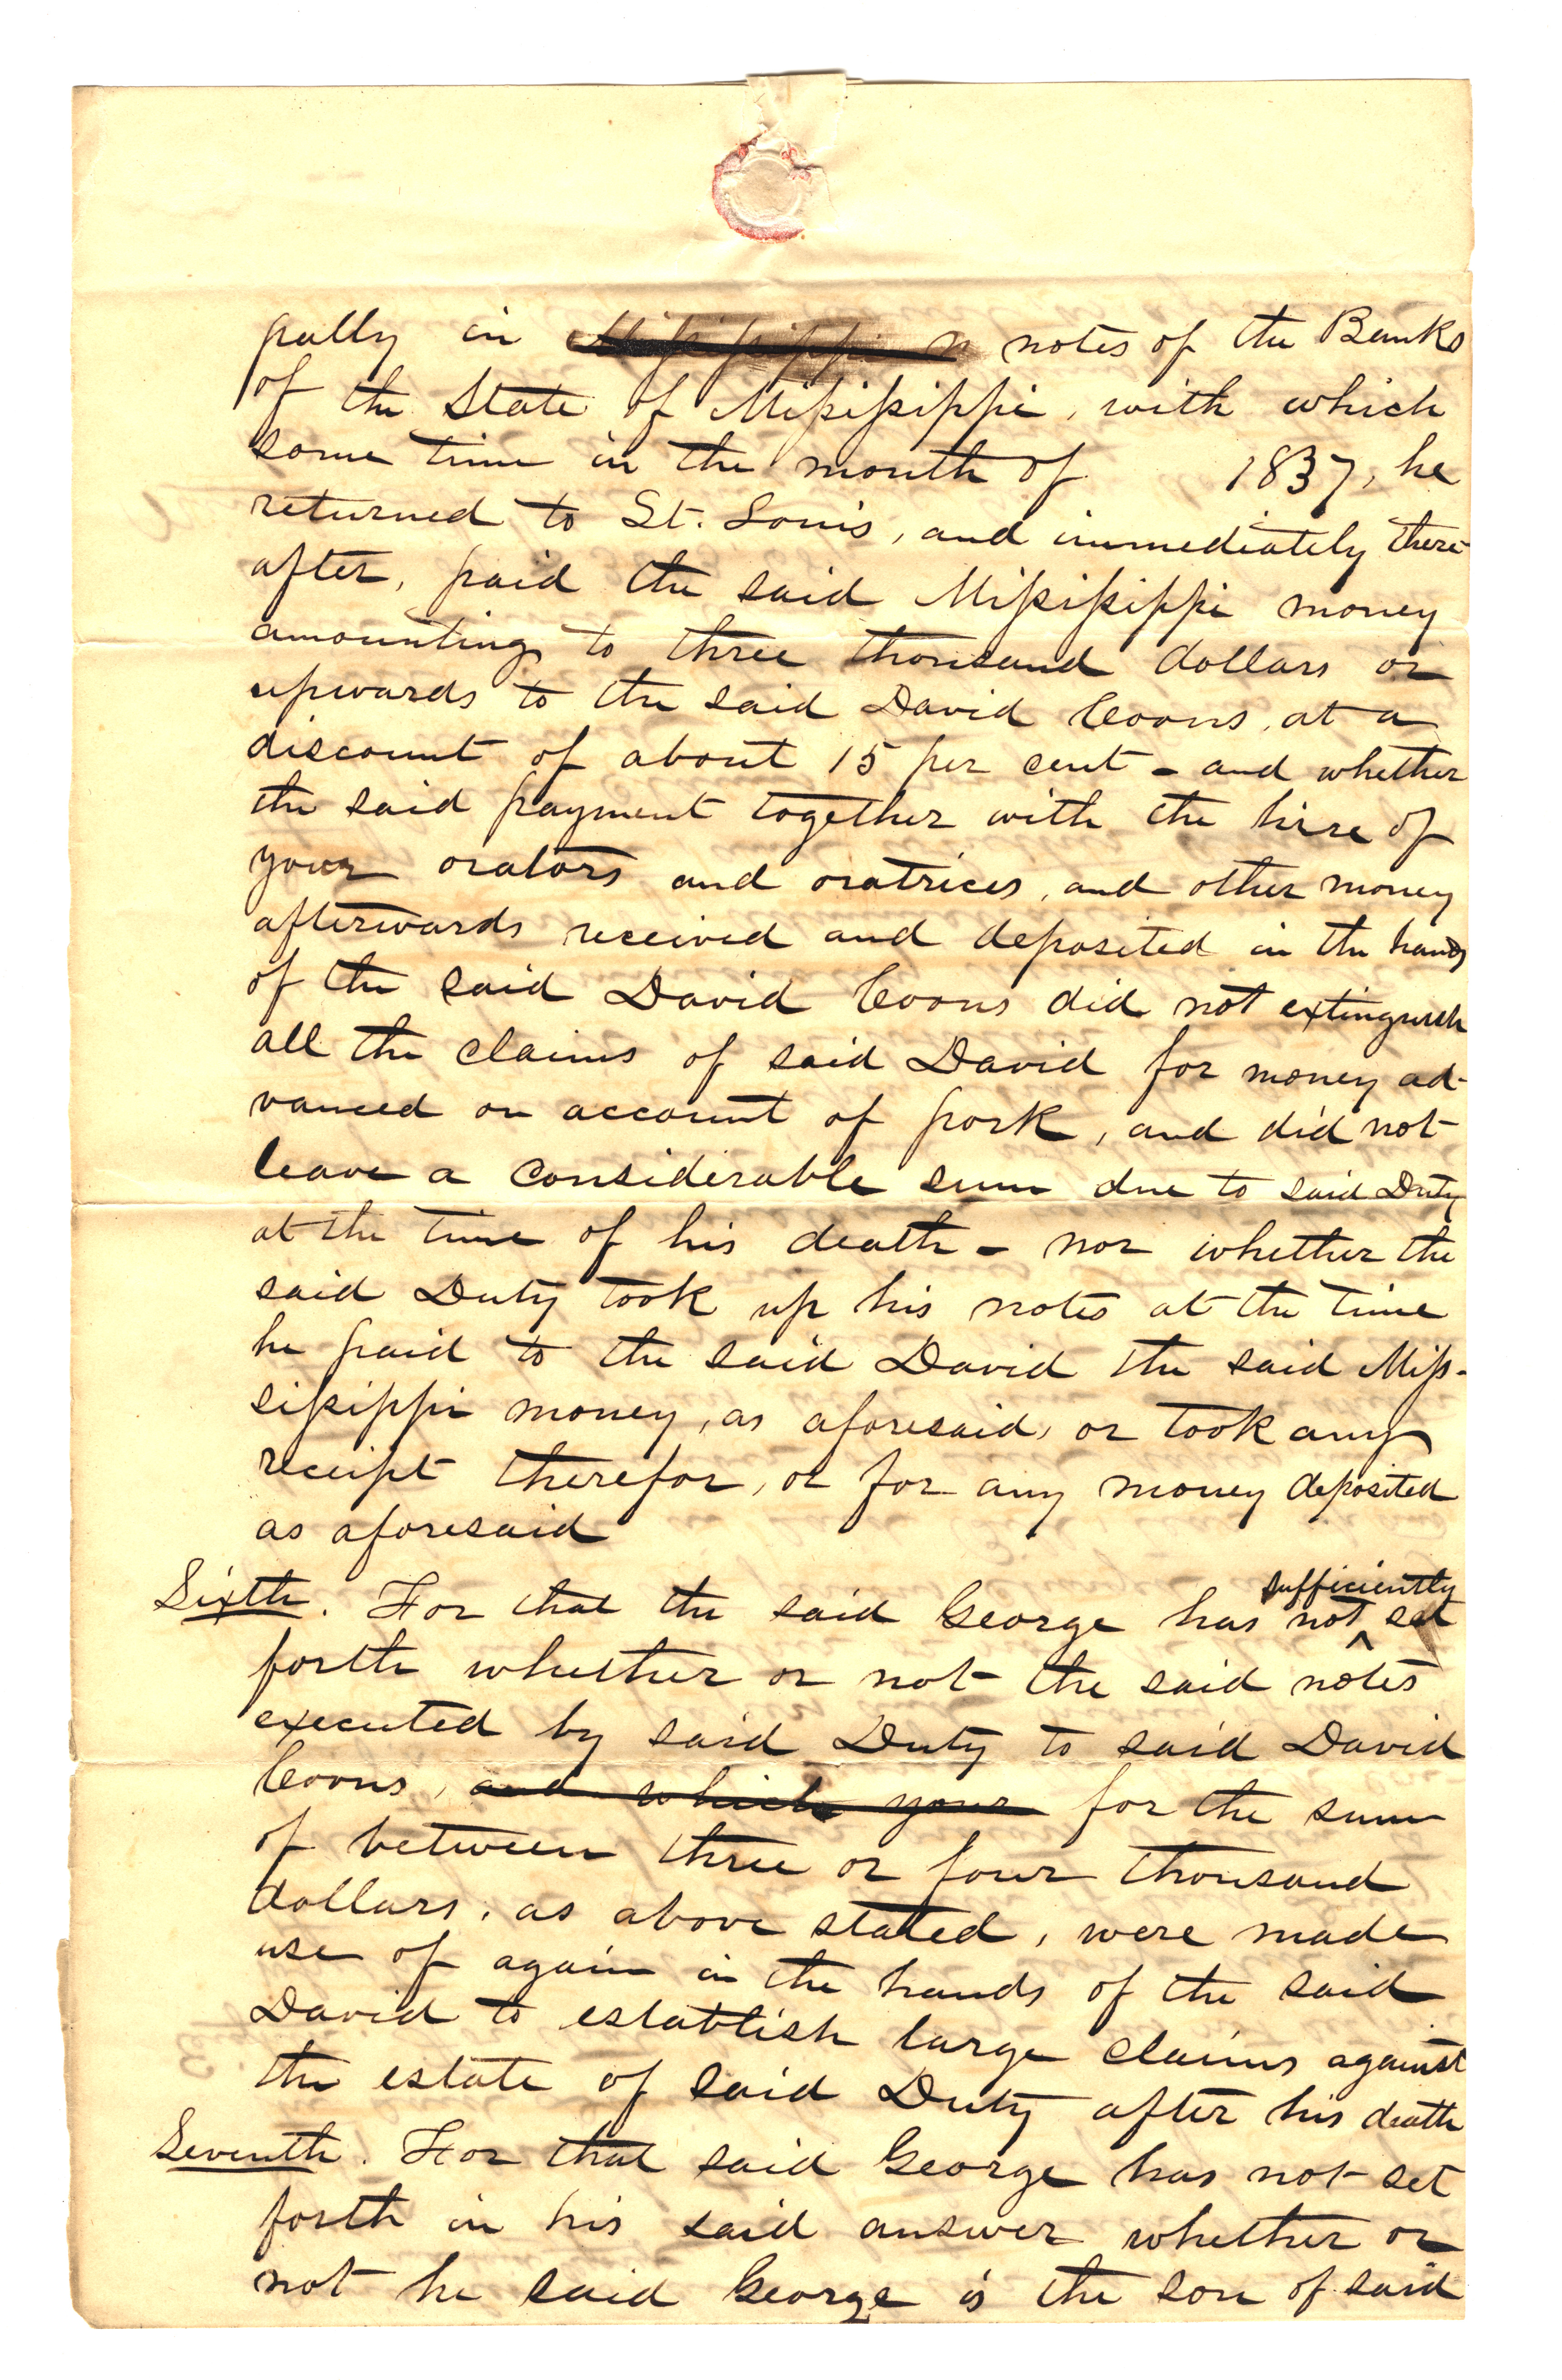 pally in Mississippi n notes of the Banks
of the State of Mississippi, with which
some time in the month of 1837, he
returned to St. Louis, and immediately there-
after, paid the said Mississippi money
amounting to three thousand dollars or
upwards to the said David Coons, at a
discount of about 15 per cent - and whether
the said payment together with the hire of
your orators and oratrices, and other money
afterwards received and deposited in the hands
of the said David Coons did not extinguish
all the claims of said David for money ad-
vanced on account of pork, and did not
leave a considerable sum due to said Duty
at the time of his death - nor whether the
said Duty took up his notes at the time
he paid to the said David the said Mis-
sissippi money, as aforesaid, or took any
receipt therefor, or for any money deposited
as aforesaid
Sixth. For that the said George has not sufficiently set
forth whether or not the said notes
executed by said Duty to said David
Coons, and which your for the sum
of between three or four thousand
dollars, as above stated, were made
use of again in the hands of the said
David to establish large claims against
the estate of said Duty after his death
Seventh. For that said George has not set
forth in his said answer whether or
not he said George is the son of said